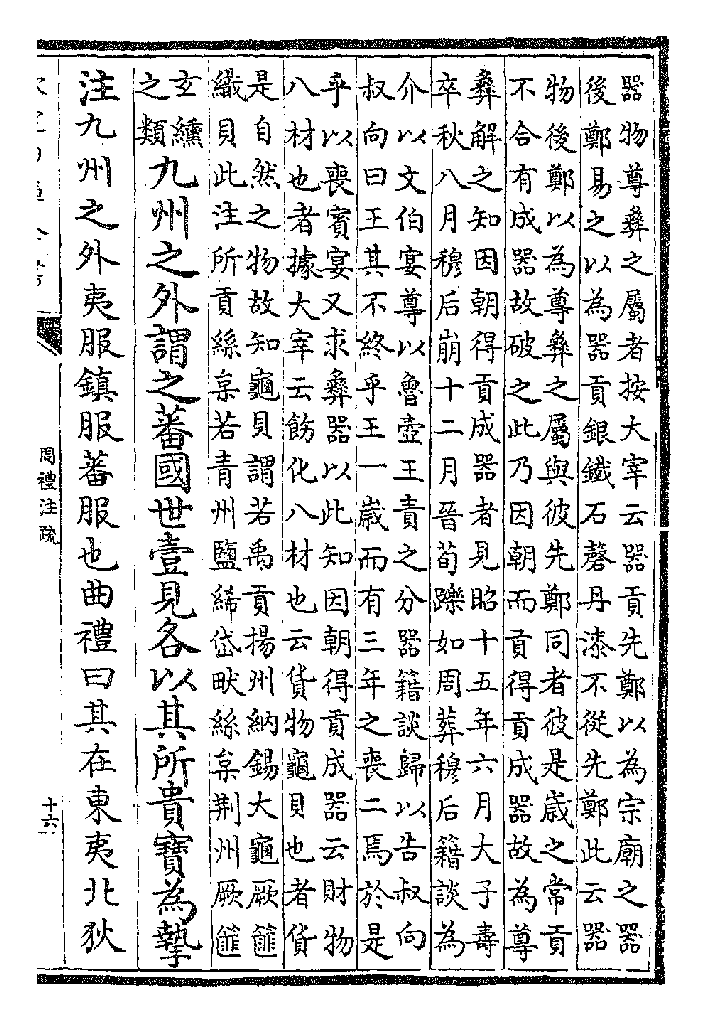 器物尊彛之屬者按大宰云器貢先鄭以為宗廟之器
後鄭易之以為器貢銀鐵石磬丹漆不從先鄭此云器
物後鄭以為尊彛之屬與彼先鄭同者彼是歲之常貢
不合有成器故破之此乃因朝而貢得貢成器故為尊
彛解之知因朝得貢成器者見昭十五年六月大子壽
卒秋八月穆后崩十二月晉荀躒如周葬穆后籍談為
介以文伯宴尊以魯壺王責之分器籍談歸以告叔向
叔向曰王其不終乎王一歲而有三年之喪二焉於是
乎以喪賓宴又求彛器以此知因朝得貢成器云財物
八材也者據大宰云飭化八材也云貨物龜貝也者貨
是自然之物故知龜貝謂若禹貢揚州納錫大龜厥篚
織貝此注所貢絲枲若青州鹽絺岱畎絲枲荆州厥篚
玄纁
之類九州之外謂之蕃國世壹見各以其所貴寶為摯
注九州之外夷服鎮服蕃服也曲禮曰其在東夷北狄
周禮注疏
十六